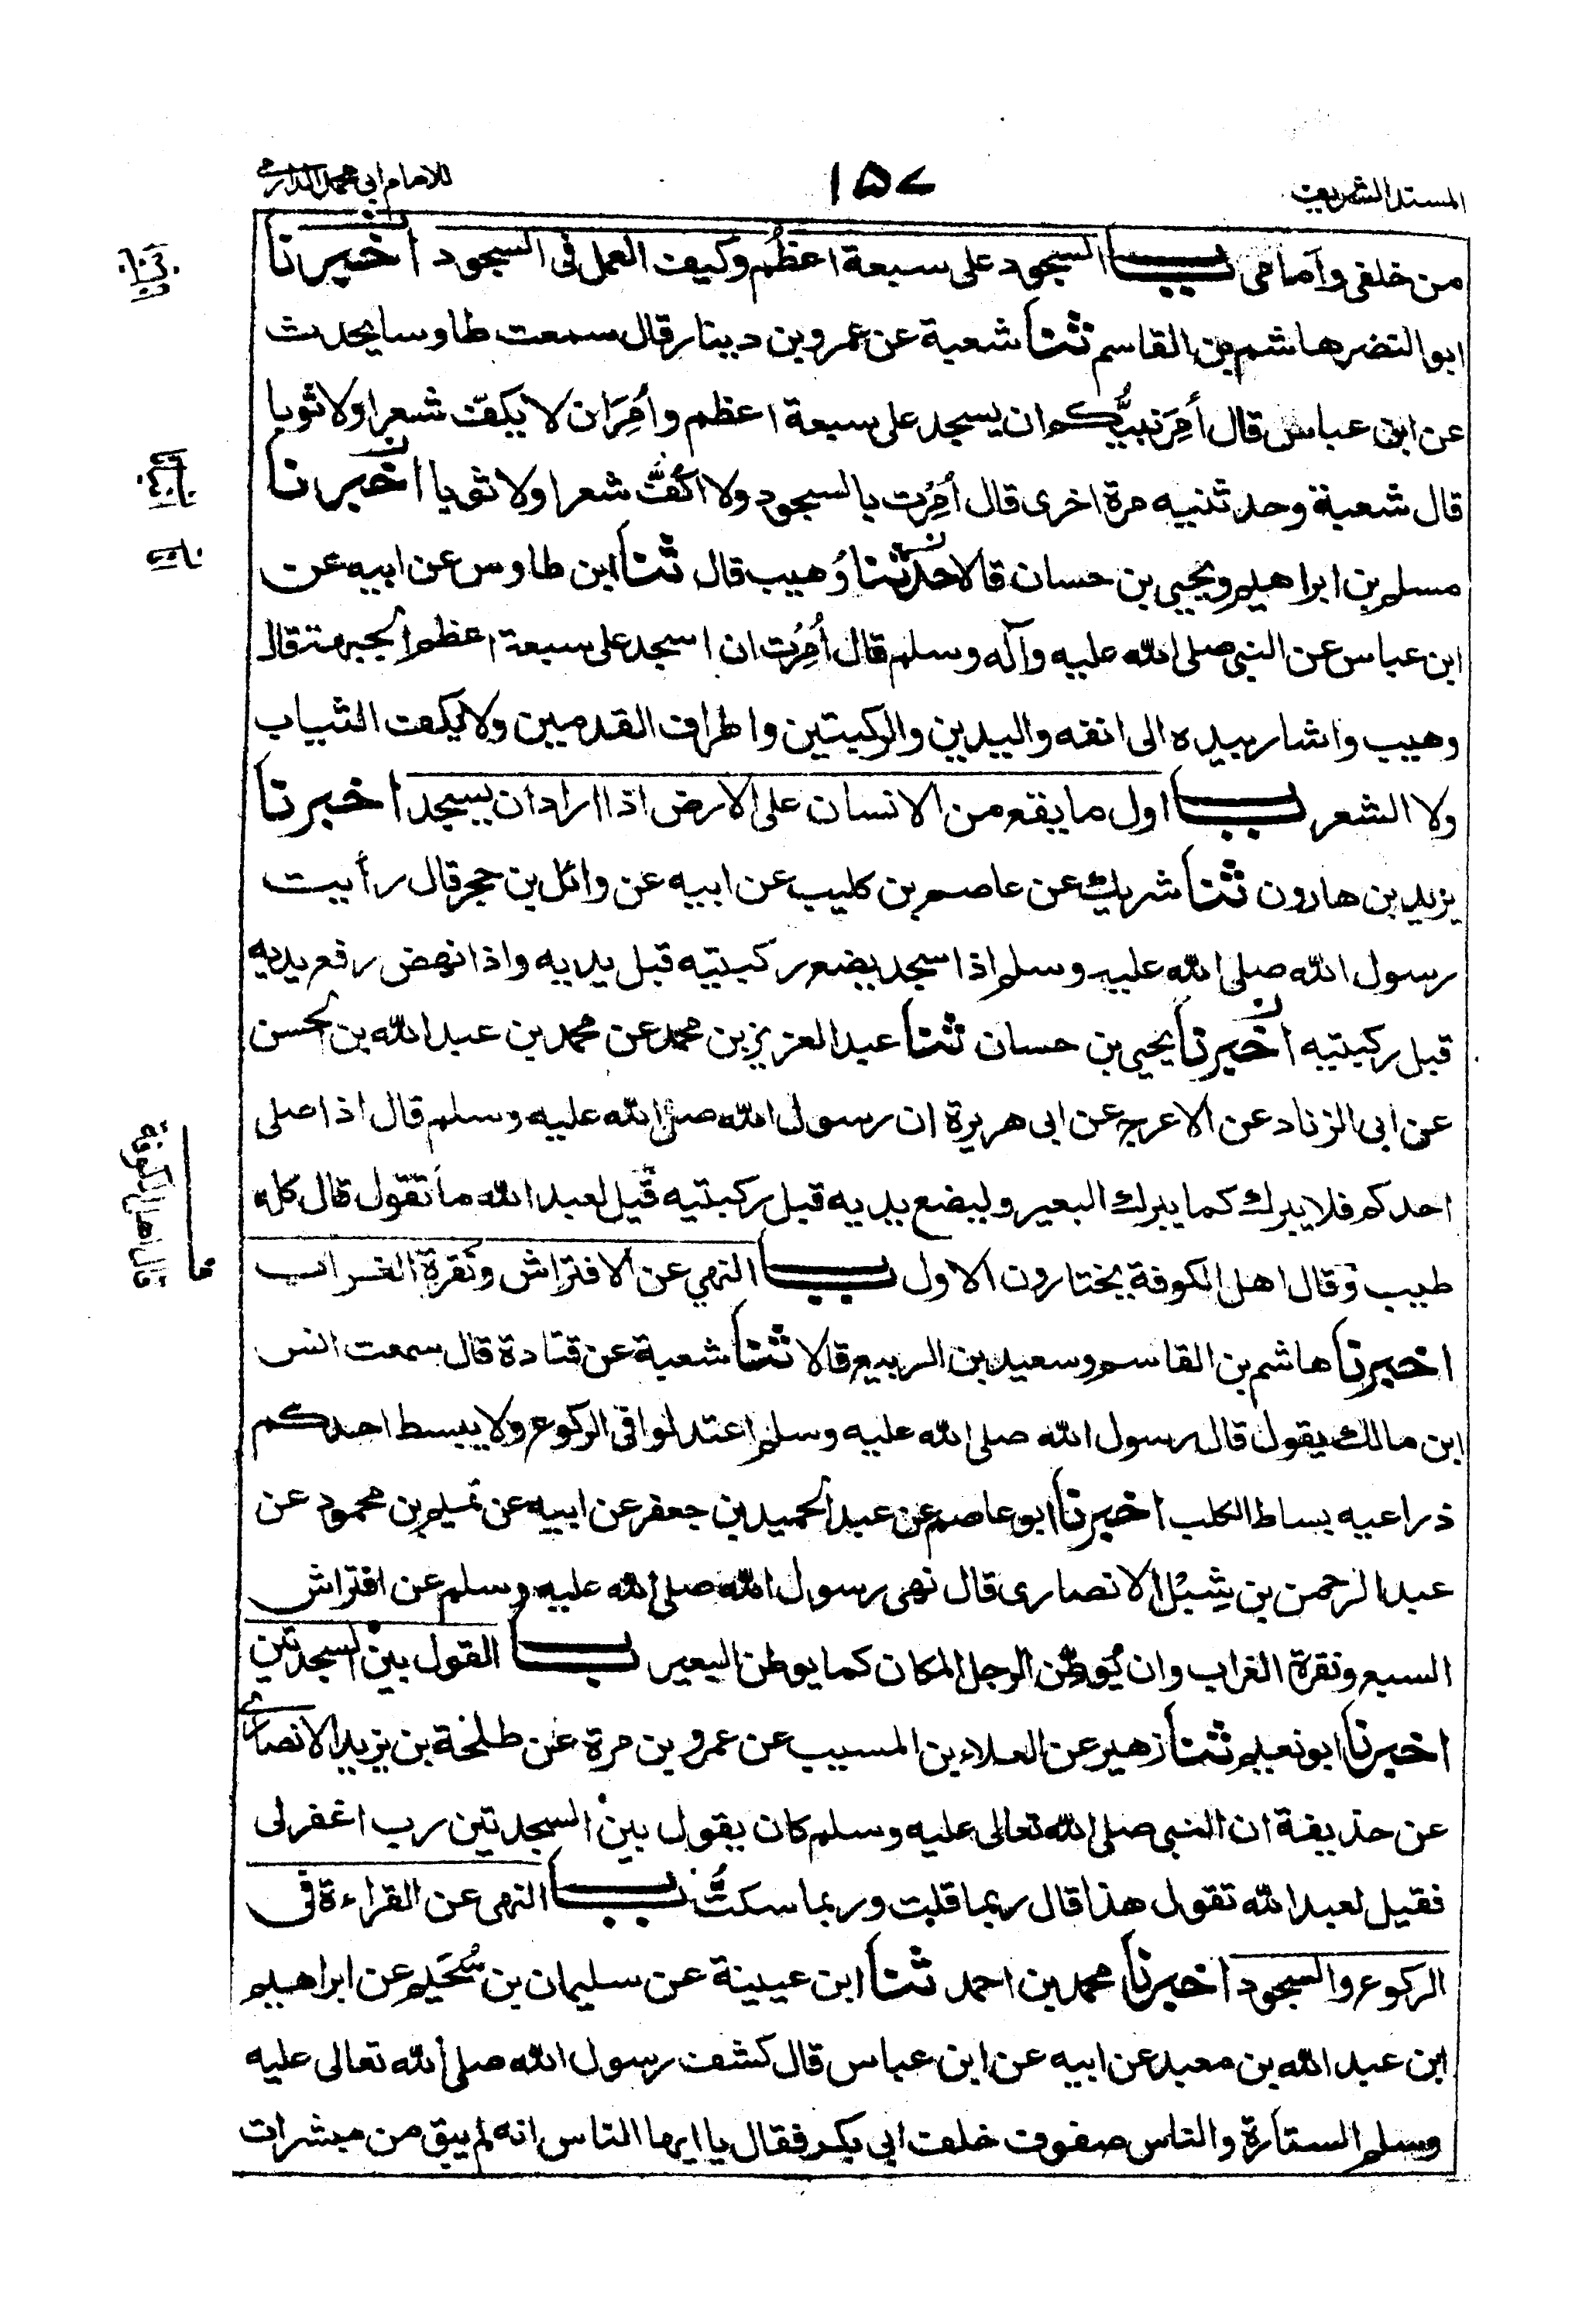 المسند الشريف
١٥٧
للامام ابي محمد الدارمي
من خلفي وأمامي باب السجود على سبعة اعظُم وكيف العمل فى السجود اخبرنا
ابو النضر هاشم بن القاسم ثنا شعبة عن عمرو بن دينار قال سمعت طاوسا يحدث
عن ابن عباس قال أُمِرَ نبيُّكم ان يسجد على سبعة اعظم وأُمِرَ ان لا يكفّ شعرا ولا ثوبا
قال شعبة وحدثنيه مرة اخرى قال أُمِرْت بالسجود ولا اكفَّ شعرا ولا ثوبا اخبرنا
مسلم بن ابراهيم ويحيى بن حسان قالا حدثنا وُهيب قال ثنا ابن طاوس عن ابيه عن
ابن عباس عن النبي صلى الله عليه وآله وسلم قال أُمِرْت ان اسجد على سبعة اعظم الجبهة قال
وهيب واشار بيده الى انفه واليدين والركبتين واطراف القدمين ولا يكفت الثياب
ولا الشعر باب اول ما يقع من الانسان على الارض اذا اراد ان يسجد اخبرنا
يزيد بن هارون ثنا شريك عن عاصم بن كليب عن ابيه عن وائل بن حجر قال رأيت
رسول الله صلى الله عليه وسلم اذا سجد يضع ركبتيه قبل يديه واذا نهض رفع يديه
قبل ركبتيه اخبرنا يحيى بن حسان ثنا عبد العزيز بن محمد عن محمد بن عبد الله بن الحسن
عن ابى الزناد عن الاعرج عن ابى هريرة ان رسول الله صلى الله عليه وسلم قال اذا صلى
احدكم فلا يبرك كما يبرك البعير وليضع يديه قبل ركبتيه قيل لعبد الله ما تقول قال كله
طيب وقال اهل الكوفة يختارون الاول باب النهي عن الافتراش ونقرة الغراب
اخبرنا هاشم بن القاسم وسعيد بن الربيع قالا ثنا شعبة عن قتادة قال سمعت انس
ابن مالك يقول قال رسول الله صلى الله عليه وسلم اعتدلوا فى الركوع ولا يبسط احدكم
ذراعيه بساط الكلب اخبرنا ابو عاصم عن عبد الحميد بن جعفر عن ابيه عن تميم بن محمود عن
عبد الرحمن بن شِبْل الانصارى قال نهى رسول الله صلى الله عليه وسلم عن افتراش
السبع ونقرة الغراب وان يُوطِن الرجل المكان كما يوطن البعير باب القول بين السجدتين
اخبرنا ابو نعيم ثنا زهير عن العلاء بن المسيب عن عمرو بن مرة عن طلحة بن يزيد الانصاري
عن حذيفة ان النبى صلى الله تعالى عليه وسلم كان يقول بين السجدتين رب اغفر لى
فقيل لعبد الله تقول هذا قال ربما قلت وربما سكتُّ باب النهى عن القراءة فى
الركوع والسجود اخبرنا محمد بن احمد ثنا ابن عيينة عن سليمان بن سُحَيم عن ابراهيم
ابن عبد الله بن معبد عن ابيه عن ابن عباس قال كشف رسول الله صلى الله تعالى عليه
وسلم الستارة والناس صفوف خلف ابي بكر فقال يا ايها الناس انه لم يبق من مبشرات
قال اهل الكوفة